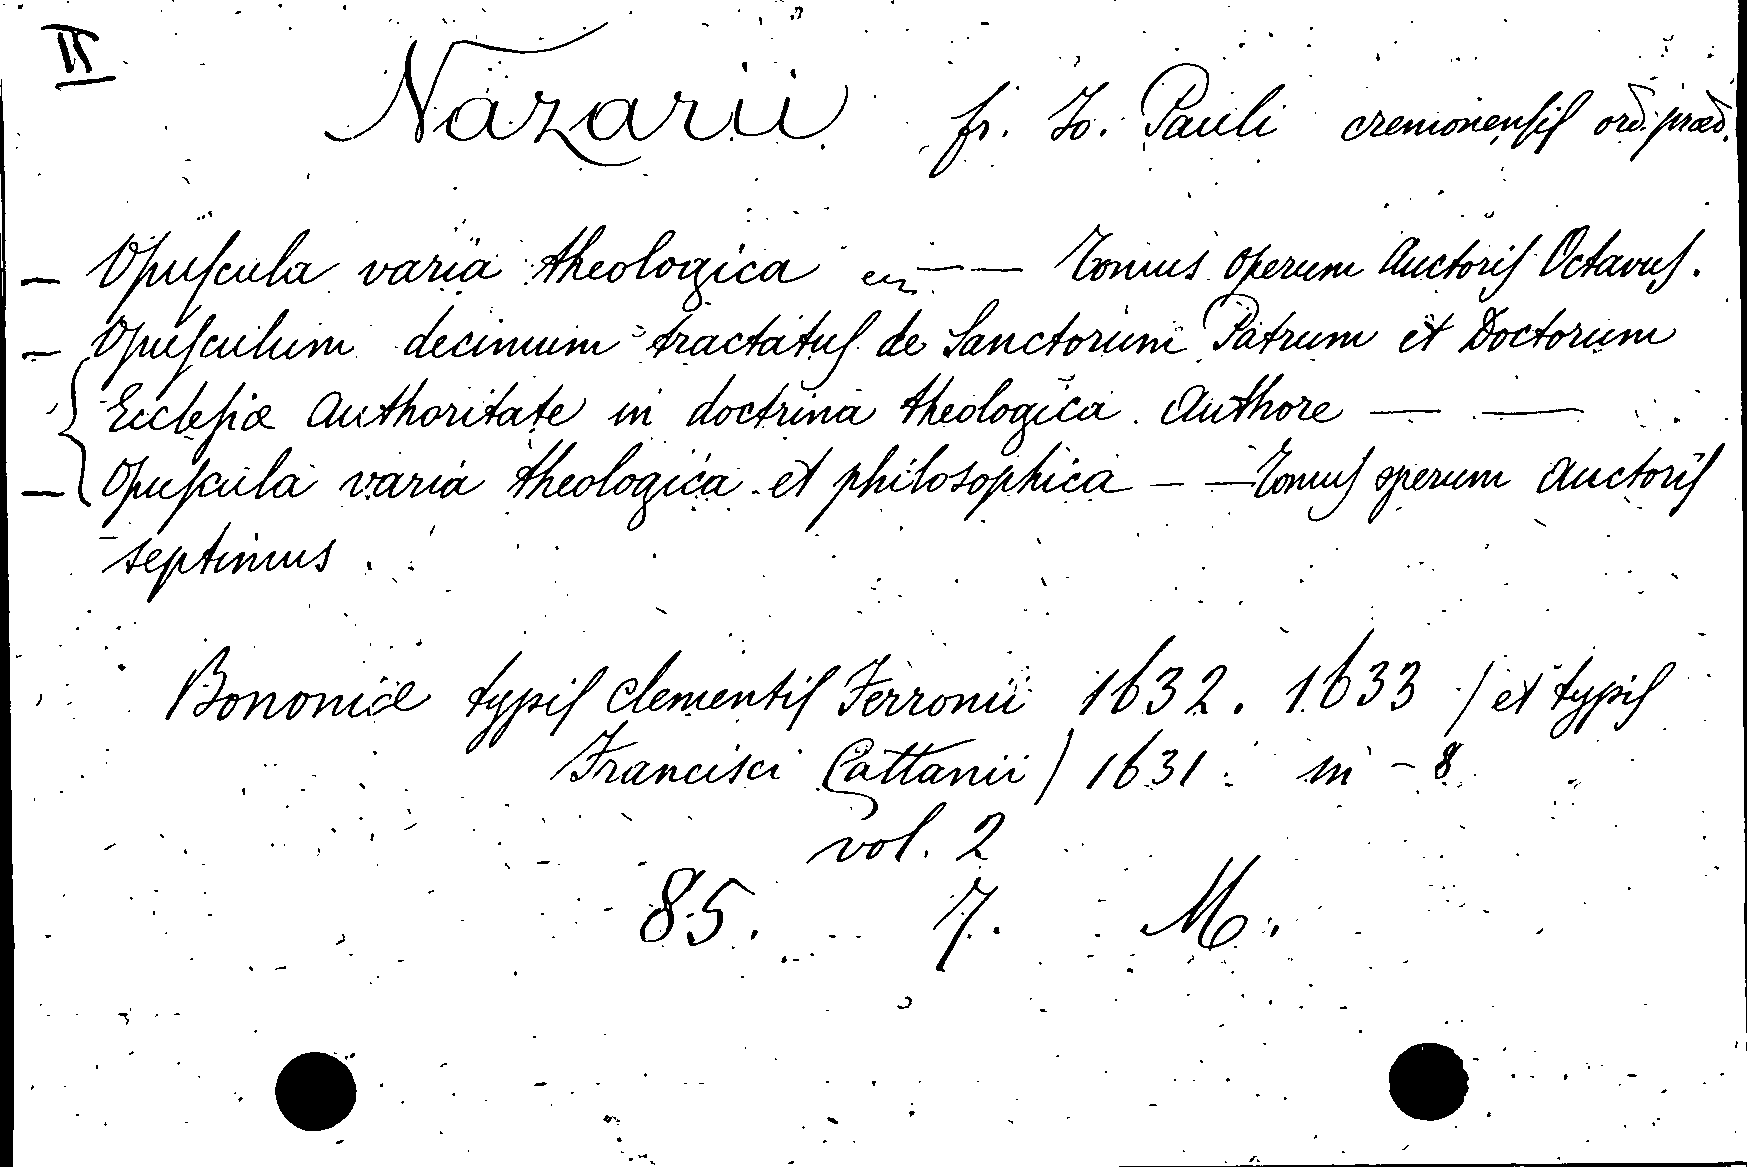 II
Nazarii fr. Io. Pauli cremonensis ord. præd.
– Opuscula varia theologica — — Tomus operum Auctoris Octavus.
– Opusculum decimum tractatus de Sanctorum Patrum et Doctorum
Ecclesiæ Authoritate in doctrina theologica. Authore — —
– Opuscula varia theologica et philosophica – — Tomus operum auctoris
septimus.
Bononiæ typis Clementis Ferronii 1632. 1633 / et typis
Francisci Cattanii) 1631. in - 8
vol. 2
85. 7. M.